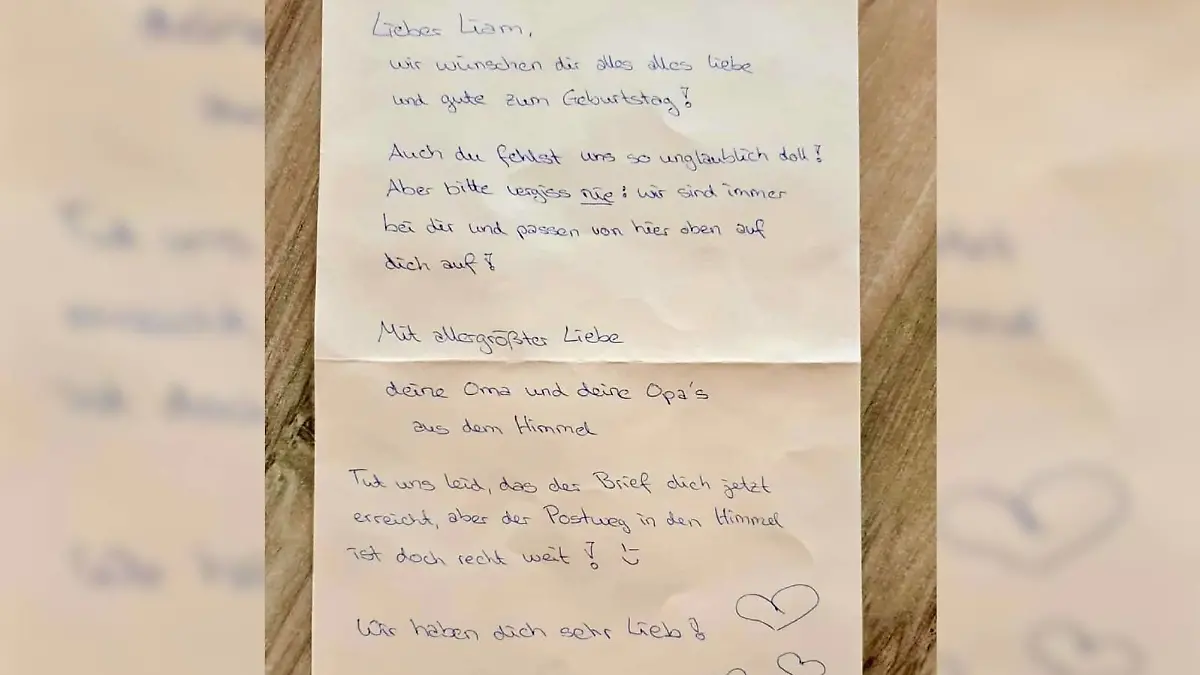 Lieber Liam,
wir wünschen dir alles alles liebe
und gute zum Geburtstag!
Auch du fehlst uns so unglaublich doll!
Aber bitte vergiss nie: wir sind immer
bei dir und passen von hier oben auf
dich auf!
Mit allergrößter Liebe
deine Oma und deine Opa's
aus dem Himmel
Tut uns leid, das der Brief dich jetzt
erreicht, aber der Postweg in den Himmel
ist doch recht weit!
Wir haben dich sehr Lieb!